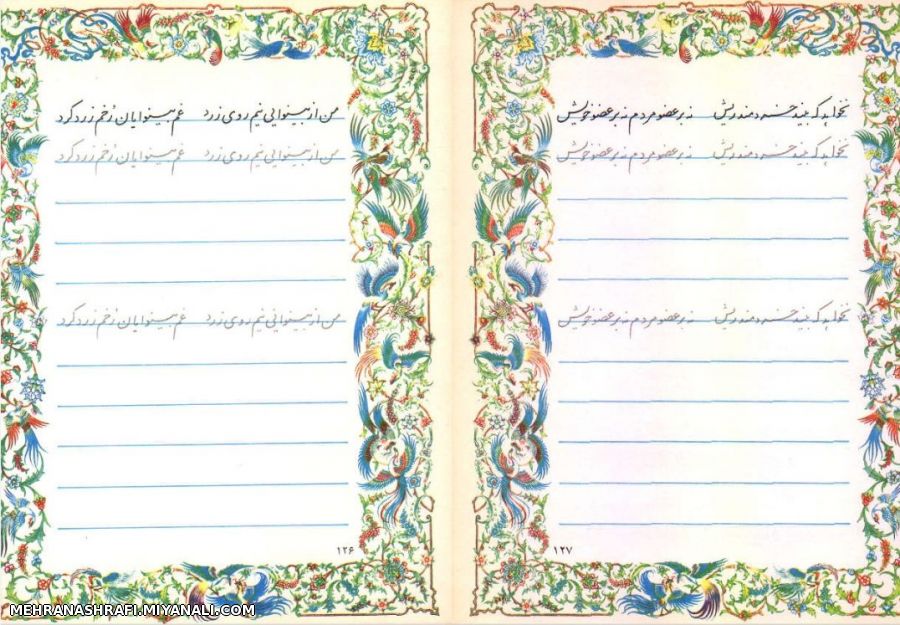 من از بینوایی نیم روی زرد غم بینوایان رُخم زرد کرد
من از بینوایی نیم روی زرد غم بینوایان رُخم زرد کرد
من از بینوایی نیم روی زرد غم بینوایان رُخم زرد کرد
۱۲۶
نخواهد که بیند خردمند ریش نه بر عضو مردم نه بر عضو خویش
نخواهد که بیند خردمند ریش نه بر عضو مردم نه بر عضو خویش
نخواهد که بیند خردمند ریش نه بر عضو مردم نه بر عضو خویش
۱۲۷
MEHRANASHRAFI.MIYANALI.COM